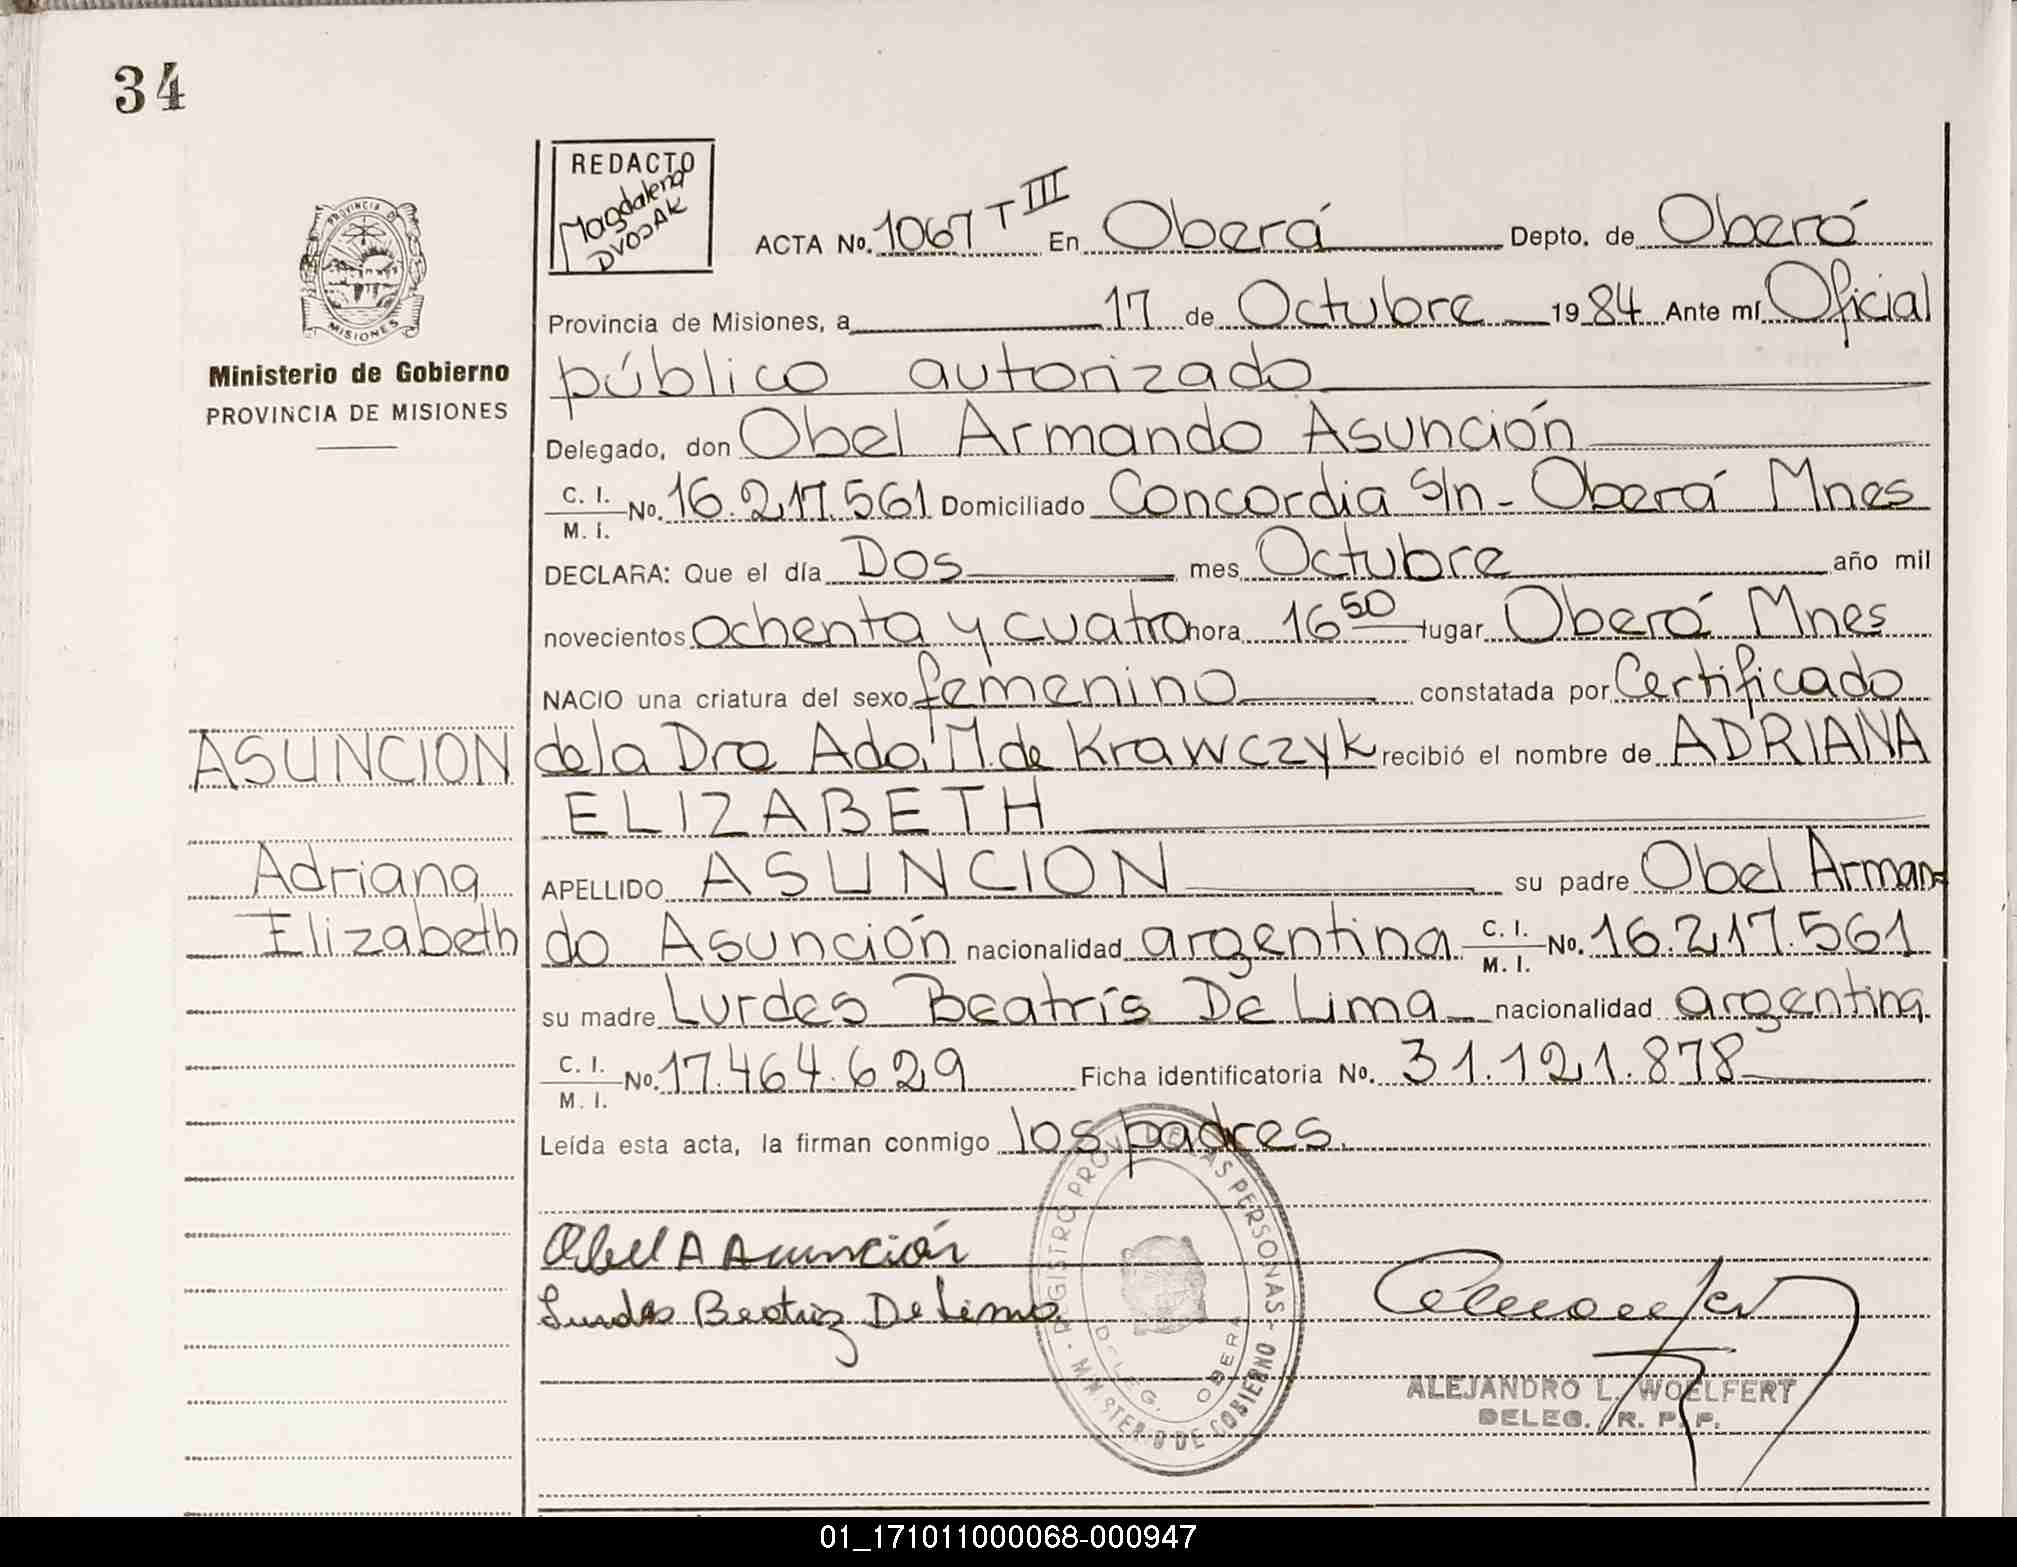 34
REDACTO
Magdalena
DVOJAK
PROVINCIA DE
MISIONES
Ministerio de Gobierno
PROVINCIA DE MISIONES
ACTA No. 1067 T III En Oberá Depto. de Oberá
Provincia de Misiones, a 17 de Octubre 1984 Ante mí Oficial
público autorizado
Delegado, don Obel Armando Asunción
C. I. M. I. No. 16.217.561 Domiciliado Concordia s/n - Oberá Mnes
DECLARA: Que el día Dos mes Octubre año mil
novecientos ochenta y cuatro hora 16 50 lugar Oberá Mnes
NACIO una criatura del sexo femenino constatada por Certificado
de la Dra Ada. M. de Krawczyk recibió el nombre de ADRIANA
ELIZABETH
APELLIDO ASUNCION su padre Obel Arman-
do Asunción nacionalidad argentina C. I. M. I. No. 16.217.561
su madre Lurdes Beatrís De Lima nacionalidad argentina
C. I. M. I. No. 17.464.629 Ficha identificatoria No. 31.121.878
Leída esta acta, la firman conmigo los padres.
ASUNCION
Adriana
Elizabeth
Obel A Asunción
Lurdes Beatriz De Lima
REGISTRO PROV. DE LAS PERSONAS - MINISTERIO DE GOBIERNO
DELEG. OBERA
ALEJANDRO L. WOELFERT
DELEG. R. P. P.
01_171011000068-000947